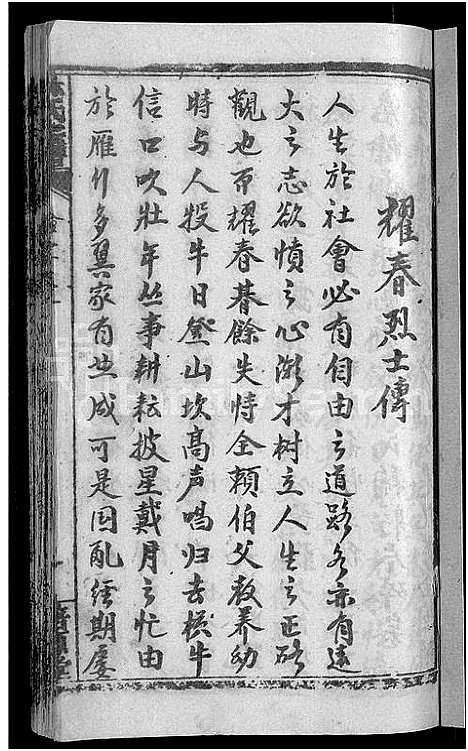 耀春烈士傳
人生於社會必有自由之道路各亦有遠
大之志欲憤之心漸才树立人生之正確
觀也而耀春暮餘失恃全賴伯父教养幼
時与人投牛日登山坎高声唱归去横牛
信口吹壮年丛事耕耘披星戴月之忙由
於雁行多翼家有些成可是因乱经期屡